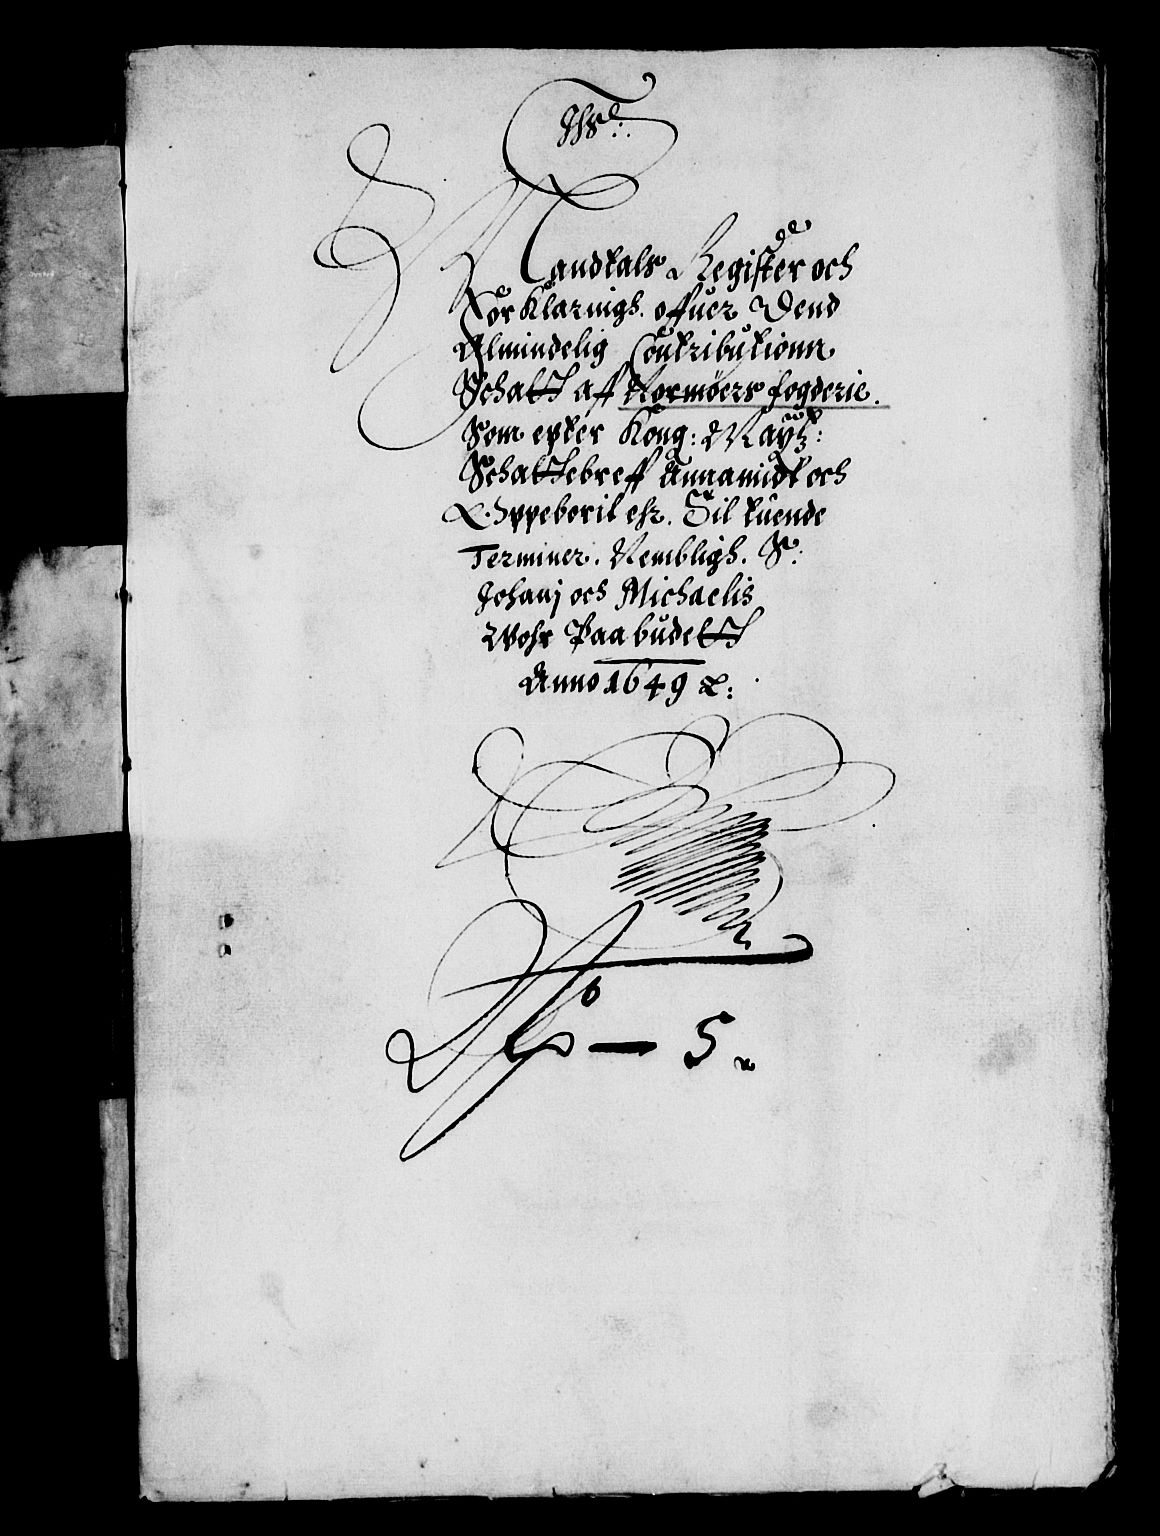 Mandtals Register och
Forklaringh. offuer Dend
Almindelig Contributionn
Schatt aff Normøers fogderie.
Som epter Kong: Maytz:
Schattebreff Annamidt och
Oppeboril ehr. Til tuende
Terminer. Nembligh. S:
Johanj och Michaelis
Wohr Paabudett
Anno 1649 &:
N° — 5